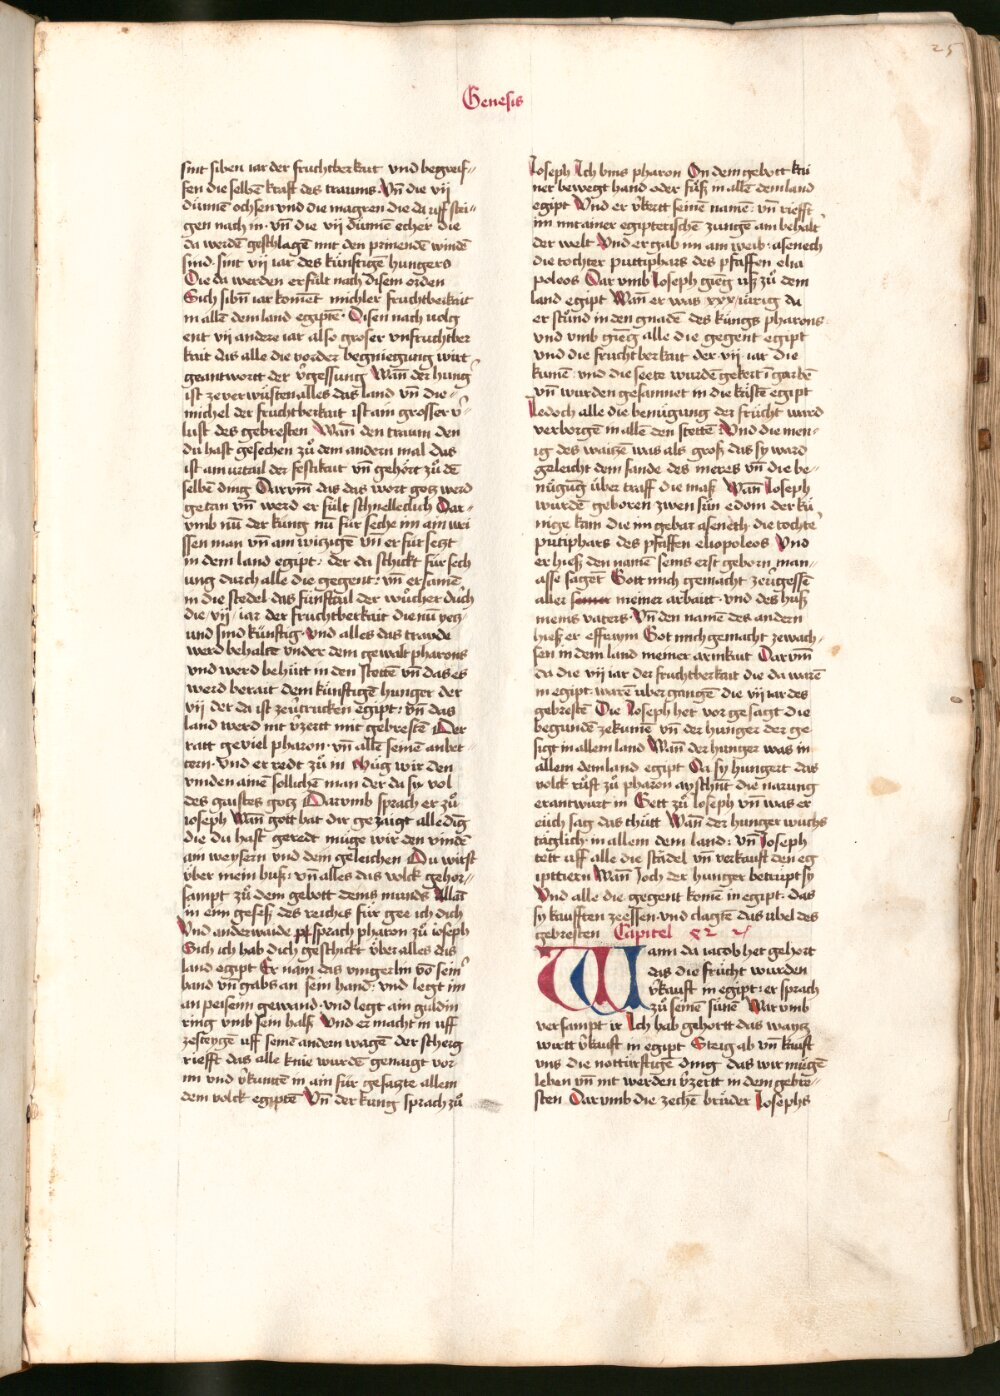 25
Genesis
sint siben iar der fruchtberkait vnd begreif-
fen die selbē kraft des traums. Vn̄ die vij
dünnē ochsen vnd die magren die da uff stei-
gen nach in. vn̄ die vij dünnē echer die
da werdē geschlagē mit den prinendē windē
sind. sint vij iar des künftigē hungers
Die da werden erfült nach disem orden
Sich sibn̄ iar komēt michler fruchtberkait
in allē dem land egiptē. Disen nach uolg
ent vij andere iar also groser vnfruchtber
kait das alle die vorder begniegung wirt
geantwortt der v̄gessung Wan̄ der hunḡ
ist ze verwüsten alles das land vn̄ die
michel der fruchtberkait ist am grosser v̄
lust des gebresten Wan̄ den traum den
du hast gesechen zů dem andern mal das
ist am urtail der festikait vn̄ gehört zů dē
selbē ding Darum̄ das das wort gotz werd
getan vn̄ werd er fült schnelleclich Dar-
vmb nū der küng nū für seche im ain wei
ssen man vn̄ am witzigē vn̄ er für setzt
in dem land egipt: der da schickt für sech
ung durch alle die gegent: vn̄ er samē
in die stedel das fünftail der wůcher duch
die vij iar der fruchtberkait die nū yetz
und sind künftig. Vnd alles das traide
werd behaltē vnder dem gewalt pharons
vnd werd behüt in den stettē vn̄ das es
werd berait dem künftigē hunger der
vij der da ist zeu̇trucken egipt: vn̄ das
land werd nit v̄zertt mit gebrestē Der
ratt geviel pharon. vn̄ allē seinē anbet-
tern. Vnd er redt zů in Müg wir den
vinden ainē sollichē man der da sy vol
des gaistes gotz Darumb sprach er zů
ioseph Wan̄ gott hat dir gezaigt alle ding
die du hast geredt müge wir den vindē
ain weysern vnd dem geleichen Du wirst
über mein huß: vn̄ alles das volck gehor-
sampt zů dem gebott deins munds Allain
in eim geseß des reiches für gee ich dich
Vnd anderwaide sprach pharon zů ioseph
Sich ich hab dich geschickt über alles das
land egipt Er nam das vingerlin vō sein̄
hand vn̄ gabs an sein hand: vnd legt im
an peisein gewand. vnd legt ain guldin
ring vmb sein halß Vnd er macht in uff
zesteygē uff seinē andern wagē der scherg
riefft das alle knie wurdē genaigt vor
im vnd v̄kuntē in ain für gesatzte allem
dem volck egiptē Vn̄ der küng sprach zů
Joseph Ich bins pharon On dem gebott kai
ner bewegt hand oder füß in allē dem land
egipt Vnd er v̄kertt seinē namē: vn̄ riefft
im mit ainer egipterischē zungē am behalt̄
der welt Vnd er gab im am weib: asenech
die tochter puttiphars des pfaffen elia
poleos Darumb Joseph gieg uß zů dem
land egipt Wan̄ er was xxx iärig da
er stůnd in den gnadē des küngs pharons:
vnd vmb gieg alle die gegent egipt
vnd die fruchtberkait der vij iar die
kamē: vnd die seete wurdē gekert ī garbē
vn̄ wurden gesamnet in die kastē egipt
Jedoch alle die benügung der frücht ward
verborgē in allē den stettē: Vnd die men-
ig des waitzē was als groß das sy ward
geleicht dem sande des meres vn̄ die be-
nügūg über traff die maß Wan̄ Joseph
wurdē geboren zwen sün e dem der kü
nige kam die im gebar aseneth die tochte
putiphars des pfaffen eliopoleos Vnd
er hieß den namē seins erst geborn man-
asse sagēt Gott mich gemacht ze u̇gessē
aller seiner meiner arbaitt. vnd des huß
meins vaters. Vn̄ den namē des andern
hieß er effraym Got mich gemacht zewach-
sen in dem land meiner armkait Darum̄
da die vij iar der fruchtberkait die da warē
in egipt. warē übergangē die vij iar des
gebrestē Die Joseph het vor gesagt die
begundē ze kumē vn̄ der hunger der ge-
sigt in allem land Wan̄ der hunger was in
allem dem land egipt Da sy hungert das
volck růft zů pharon ayschent die narung
er antwurt in Gett zů Joseph vn̄ was er
eüch sag das thütt Wan̄ der hunger wuchs
täglich in allem dem land: vn̄ Joseph
tett uff alle die städel vn̄ verkauft den eg
ipttiern Wan̄ Joch der hunger betrupt sy
Vnd alle die gegent komē in egipt. das
sy kaufften ze essen. vnd clagtē das übel des
gebresten Capitel 42
Wann da iacob het gehort
das die frücht wurden
v̄kauft in egipt: er sprach
zů seinē sünē Warumb
versampt ir Ich hab gehortt das waitz
wirtt v̄kauft in egipt Steig ab vn̄ kauft
vns die nottürftigē ding das wir mügē
leben vn̄ nit werden v̄zertt in dem gebre-
sten Darumb die zechē brüder Josephs